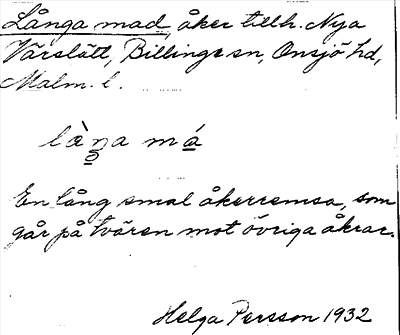 Långa mad, åker tillh. Nya
Värslätt, Billinge sn, Onsjö hd,
Malm. l.
là̀ŋa má
En lång smal åkerremsa, som
går på tvären mot övriga åkrar.
Helga Persson 1932